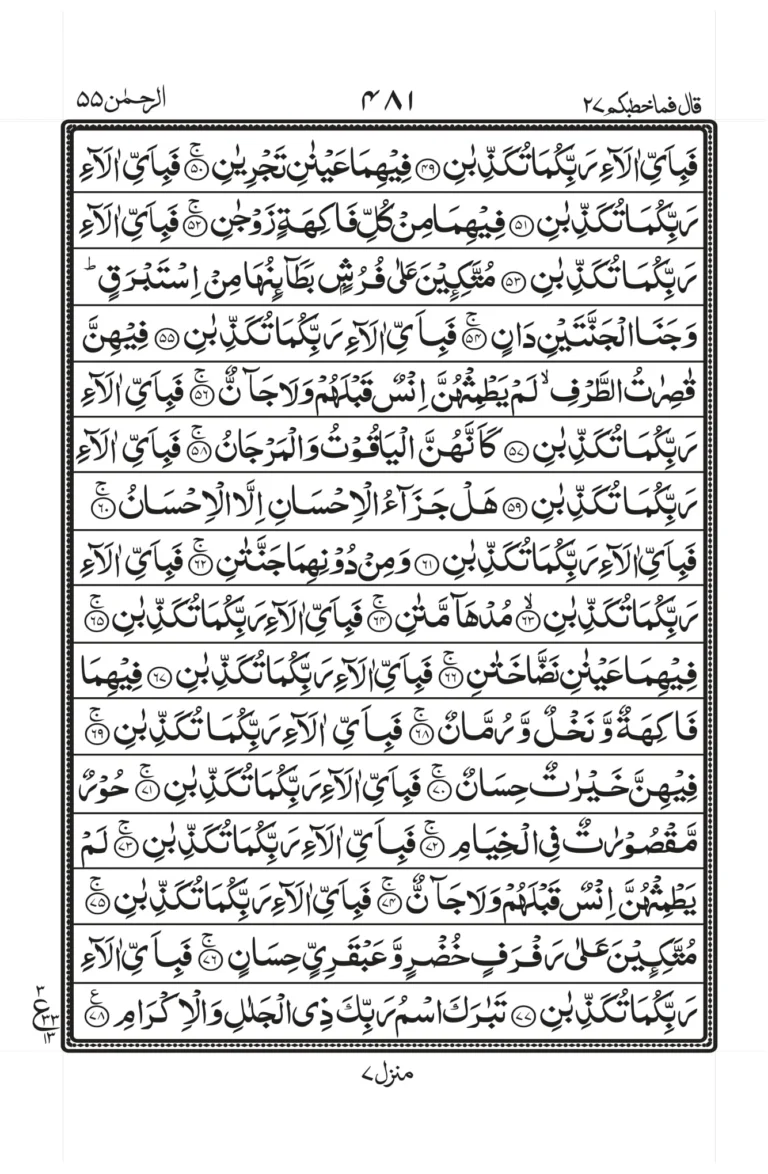 قال فما خطبكم ۲۷ ۴۸۱ الرحمٰن ۵۵
فَبِاَیِّ اٰلَآءِ رَبِّكُمَا تُكَذِّبٰنِ ﴿۴۹﴾ فِیْهِمَا عَیْنٰنِ تَجْرِیٰنِ ۚ﴿۵۰﴾ فَبِاَیِّ اٰلَآءِ
رَبِّكُمَا تُكَذِّبٰنِ ﴿۵۱﴾ فِیْهِمَا مِنْ كُلِّ فَاكِهَةٍ زَوْجٰنِ ۚ﴿۵۲﴾ فَبِاَیِّ اٰلَآءِ
رَبِّكُمَا تُكَذِّبٰنِ ﴿۵۳﴾ مُتَّكِـِٕیْنَ عَلٰی فُرُشٍۭ بَطَآىِٕنُهَا مِنْ اِسْتَبْرَقٍ ؕ
وَ جَنَا الْجَنَّتَیْنِ دَانٍ ۚ﴿۵۴﴾ فَبِاَیِّ اٰلَآءِ رَبِّكُمَا تُكَذِّبٰنِ ﴿۵۵﴾ فِیْهِنَّ
قٰصِرٰتُ الطَّرْفِ ۙ لَمْ یَطْمِثْهُنَّ اِنْسٌ قَبْلَهُمْ وَ لَا جَآنٌّ ۚ﴿۵۶﴾ فَبِاَیِّ اٰلَآءِ
رَبِّكُمَا تُكَذِّبٰنِ ﴿۵۷﴾ كَاَنَّهُنَّ الْیَاقُوْتُ وَ الْمَرْجَانُ ۚ﴿۵۸﴾ فَبِاَیِّ اٰلَآءِ
رَبِّكُمَا تُكَذِّبٰنِ ﴿۵۹﴾ هَلْ جَزَآءُ الْاِحْسَانِ اِلَّا الْاِحْسَانُ ۚ﴿۶۰﴾
فَبِاَیِّ اٰلَآءِ رَبِّكُمَا تُكَذِّبٰنِ ﴿۶۱﴾ وَ مِنْ دُوْنِهِمَا جَنَّتٰنِ ۚ﴿۶۲﴾ فَبِاَیِّ اٰلَآءِ
رَبِّكُمَا تُكَذِّبٰنِ ۙ﴿۶۳﴾ مُدْهَآ مَّتٰنِ ۚ﴿۶۴﴾ فَبِاَیِّ اٰلَآءِ رَبِّكُمَا تُكَذِّبٰنِ ۚ﴿۶۵﴾
فِیْهِمَا عَیْنٰنِ نَضَّاخَتٰنِ ۚ﴿۶۶﴾ فَبِاَیِّ اٰلَآءِ رَبِّكُمَا تُكَذِّبٰنِ ﴿۶۷﴾ فِیْهِمَا
فَاكِهَةٌ وَّ نَخْلٌ وَّ رُمَّانٌ ۚ﴿۶۸﴾ فَبِاَیِّ اٰلَآءِ رَبِّكُمَا تُكَذِّبٰنِ ۚ﴿۶۹﴾
فِیْهِنَّ خَیْرٰتٌ حِسَانٌ ۚ﴿۷۰﴾ فَبِاَیِّ اٰلَآءِ رَبِّكُمَا تُكَذِّبٰنِ ۚ﴿۷۱﴾ حُوْرٌ
مَّقْصُوْرٰتٌ فِی الْخِیَامِ ۚ﴿۷۲﴾ فَبِاَیِّ اٰلَآءِ رَبِّكُمَا تُكَذِّبٰنِ ۚ﴿۷۳﴾ لَمْ
یَطْمِثْهُنَّ اِنْسٌ قَبْلَهُمْ وَ لَا جَآنٌّ ۚ﴿۷۴﴾ فَبِاَیِّ اٰلَآءِ رَبِّكُمَا تُكَذِّبٰنِ ۚ﴿۷۵﴾
مُتَّكِـِٕیْنَ عَلٰی رَفْرَفٍ خُضْرٍ وَّ عَبْقَرِیٍّ حِسَانٍ ۚ﴿۷۶﴾ فَبِاَیِّ اٰلَآءِ
رَبِّكُمَا تُكَذِّبٰنِ ﴿۷۷﴾ تَبٰرَكَ اسْمُ رَبِّكَ ذِی الْجَلٰلِ وَ الْاِكْرَامِ ﴿۷۸﴾ع
۳
ع ۳۳
۱۳
منزل ۷